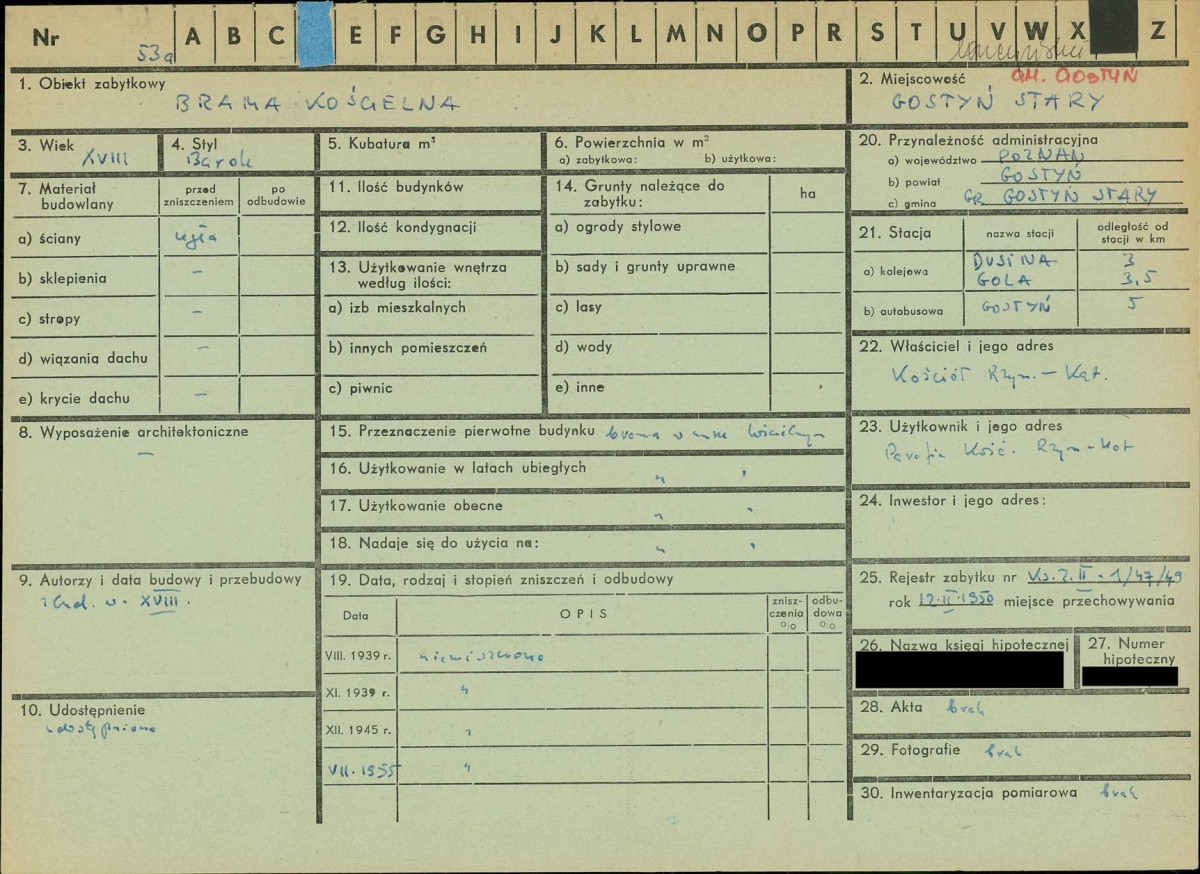 Nr 53a A B C E F G H I J K L M N O P R S T U V W X Z
1. Obiekt zabytkowy
BRAMA KOŚCIELNA
2. Miejscowość GM. GOSTYŃ
GOSTYŃ STARY
3. Wiek
XVIII
4. Styl
Barok
5. Kubatura m³
6. Powierzchnia w m²
a) zabytkowa: b) użytkowa:
20. Przynależność administracyjna
a) województwo POZNAŃ
b) powiat GOSTYŃ
c) gmina GR GOSTYŃ STARY
7. Materiał budowlany
przed zniszczeniem
po odbudowie
a) ściany cegła
b) sklepienia –
c) stropy –
d) wiązania dachu –
e) krycie dachu –
11. Ilość budynków
12. Ilość kondygnacji
13. Użytkowanie wnętrza
według ilości:
a) izb mieszkalnych
b) innych pomieszczeń
c) piwnic
14. Grunty należące do
zabytku:
ha
a) ogrody stylowe
b) sady i grunty uprawne
c) lasy
d) wody
e) inne
21. Stacja
nazwa stacji
odległość od
stacji w km
a) kolejowa
DUSINA 3
GOLA 3,5
b) autobusowa GOSTYŃ 5
22. Właściciel i jego adres
Kościół Rzym.-Kat.
8. Wyposażenie architektoniczne
–
15. Przeznaczenie pierwotne budynku brama w murze kościelnym
16. Użytkowanie w latach ubiegłych " "
17. Użytkowanie obecne " "
18. Nadaje się do użycia na: " "
23. Użytkownik i jego adres
Parafia Kość. Rzym-Kat
24. Inwestor i jego adres:
9. Autorzy i data budowy i przebudowy
XVIII.
19. Data, rodzaj i stopień zniszczeń i odbudowy
Data
OPIS
znisz-
czenia
%
odbu-
dowa
%
VIII. 1939 r. niezniszczona
XI. 1939 r. "
XII. 1945 r. "
VII. 1955 "
25. Rejestr zabytku nr
rok 12.II.1950 miejsce przechowywania
26. Nazwa księgi hipotecznej
27. Numer
hipoteczny
10. Udostępnienie
udostępniona
28. Akta brak
29. Fotografie brak
30. Inwentaryzacja pomiarowa brak